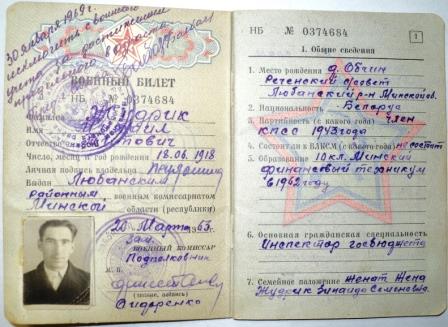 30 января 1969г.
исключить с воинского
учета по достижении
предельного возраста
ВОЕННЫЙ БИЛЕТ
НБ № 0374684
Жудрик
Имя Михаил
Отчество
Число, месяц и год рождения 18.06.1918
Личная подпись владельца
Выдан Любанским
районным военным комиссариатом
Минской области (республики)
20 Марта 1963 г.
Зам.
ВОЕННЫЙ КОМИССАР
Подполковник
М. П.
(звание, подпись)
Сидоренко
НБ № 0374684
1
I. Общие сведения
1. Место рождения д. Обчин
Реченский с/совет
Любанский р-н Минской обл.
2. Национальность Беларус
3. Партийность (с какого года) член
КПСС 1943 года
4. Состоит ли в ВЛКСМ (с какого года) не состоит
5. Образование 10 кл. Минский
финансовый техникум
в 1962 году
6. Основная гражданская специальность
Инспектор госбюджета
7. Семейное положение женат жена
Жудрик Зинаида Семеновна.